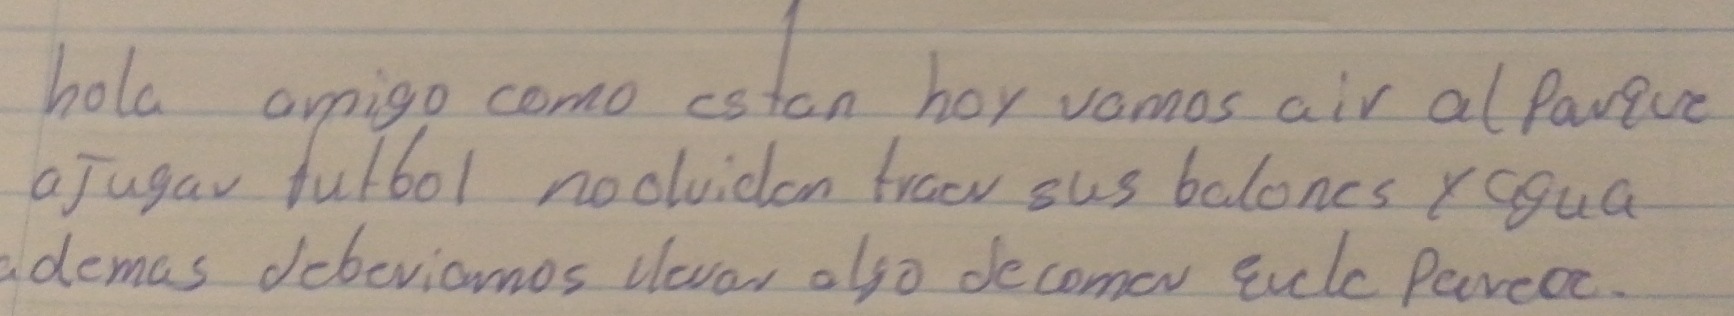 hola amigo como estan hoy vamos air al Parque
aJugar futbol noolviden traer sus balones y agua
ademas deberiamos llevar algo decomer que le Parece.